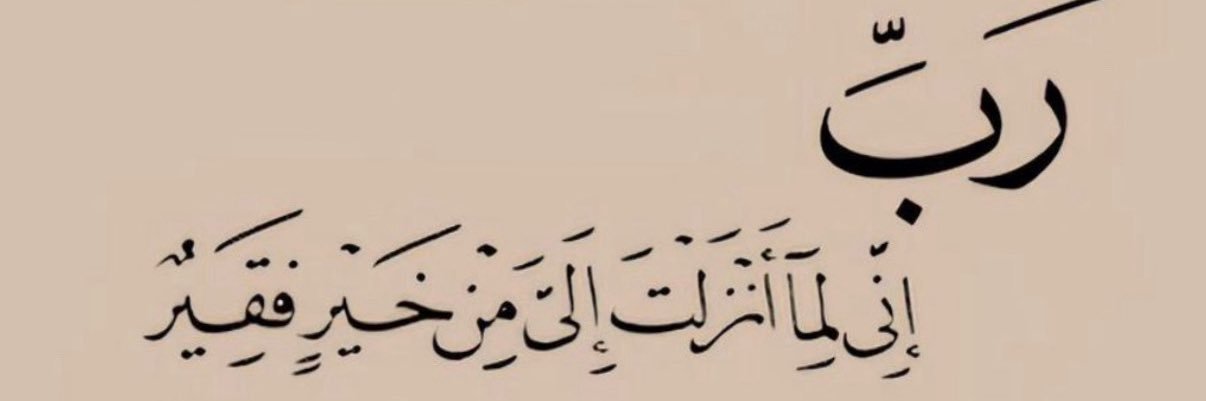 رَبَّ
إِنِّى لِمَآ أَنْزَلْتَ إِلَىَّ مِنْ خَيْرٍ فَقِيرٌ